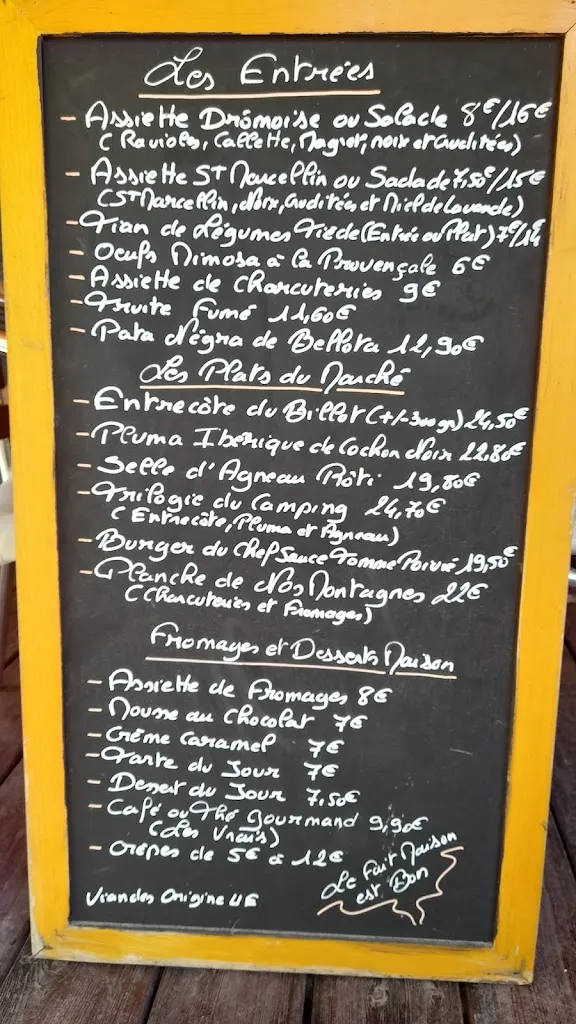 Les Entrées
- Assiette Drômoise ou Salade 8€/16€
(Ravioles, Caillette, Magret, noix et Crudités)
- Assiette St Marcellin ou Salade 7,50€/15€
(St Marcellin, Noix, Crudités et Miel de Lavande)
- Tian de Légumes Tiède (Entrée ou Plat) 7€/14
- Oeufs Mimosa à la Provençale 6€
- Assiette de Charcuteries 9€
- Truite Fumé 11,60€
- Pata Négra de Bellota 12,90€
Les Plats du Marché
- Entrecôte du Billot (+/- 300 gr) 24,50€
- Pluma Ibérique de Cochon Noir 22.80€
- Selle d'Agneau Rôti 19,80€
- Trilogie du Camping 24,70€
(Entrecôte, Pluma et Agneau)
- Burger du Chef Sauce Tomme Poivré 19,50€
- Planche de Nos Montagnes 22€
(Charcuteries et Fromages)
Fromages et Desserts Maison
- Assiette de Fromages 8€
- Mousse au Chocolat 7€
- Crème Caramel 7€
- Tarte du Jour 7€
- Dessert du Jour 7,50€
- Café ou Thé Gourmand 9,90€
(Les Vrais)
- Crêpes de 5€ à 12€
Le Fait Maison
est Bon
Viandes Origine UE